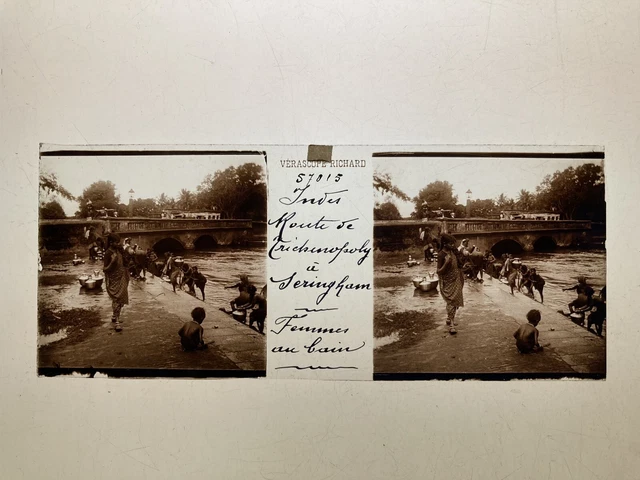 VÉRASCOPE RICHARD
57015
Indes
Route de
Trichinopoly
à
Seringham
Femmes
au bain